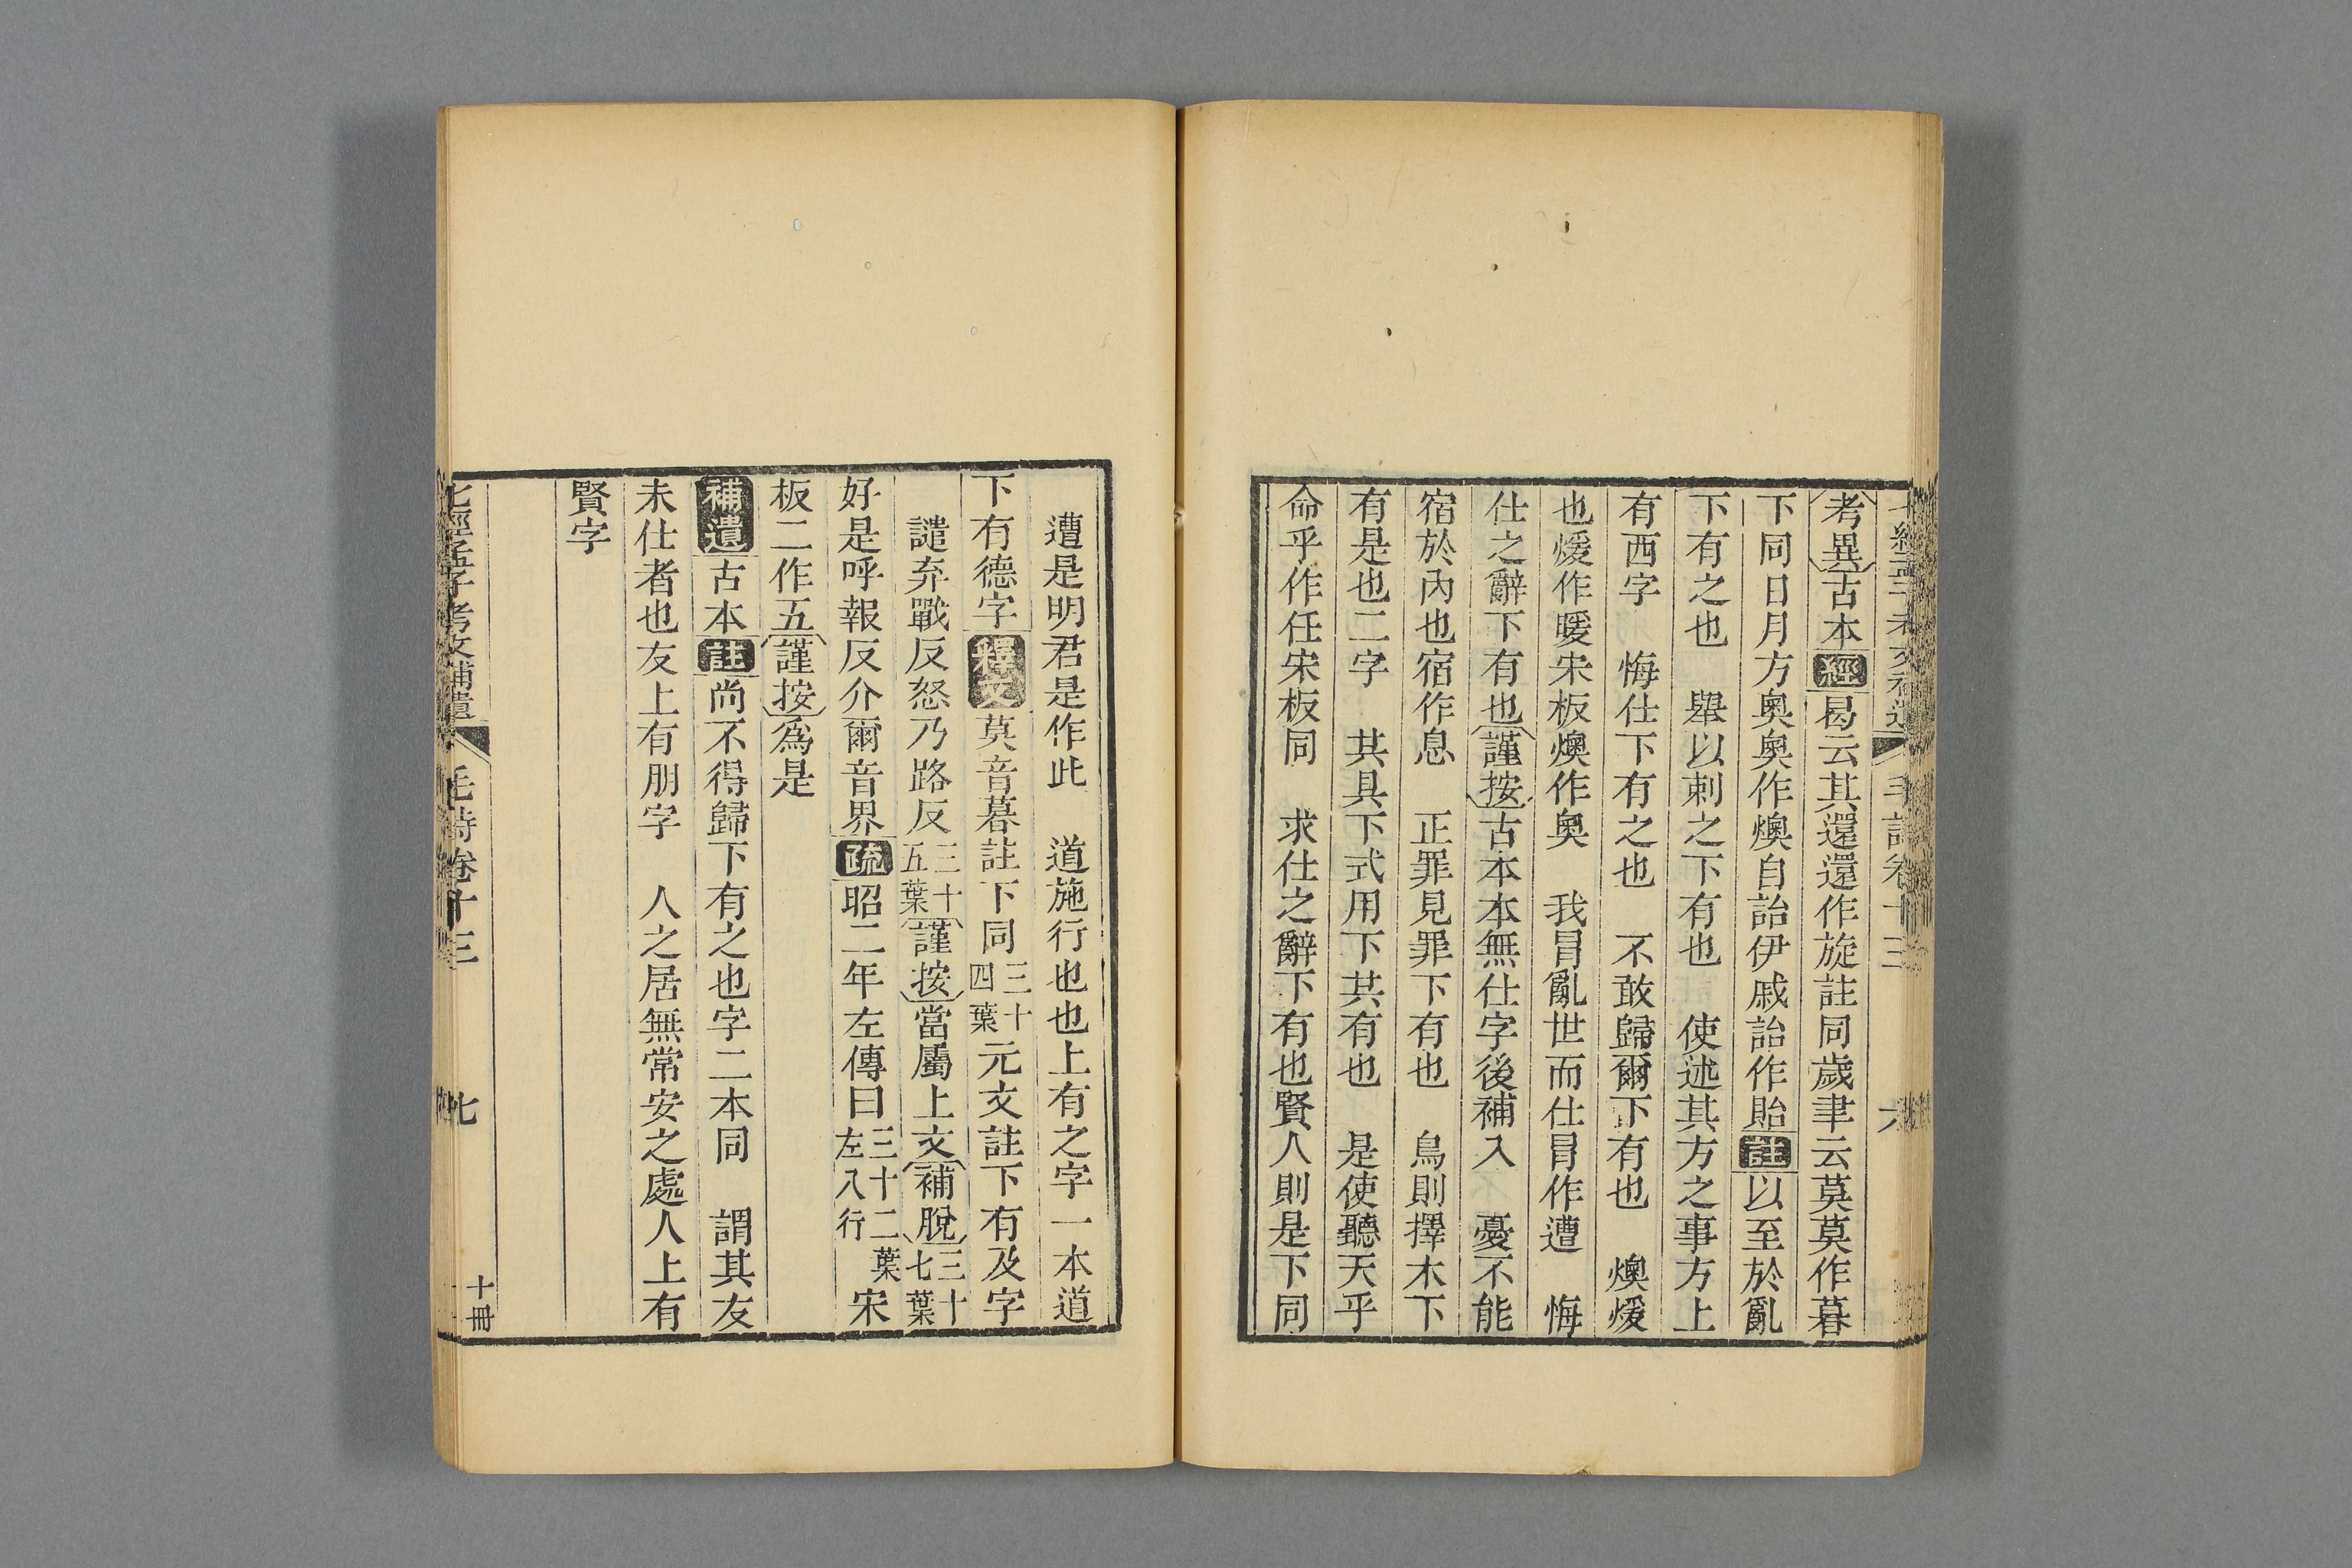 七經孟子考文補遺　毛詩卷十三　六
考異古本經曷云其還還作旋註同歲聿云莫莫作暮
下同日月方奧奧作燠自詒伊戚詒作貽註以至於亂
下有之也　舉以刺之下有也　使述其方之事方上
有西字　悔仕下有之也　不敢歸爾下有也　燠煖
也煖作暖宋板燠作奥　我冒亂世而仕冒作遭　悔
仕之辭下有也謹按古本本無仕字後補入　憂不能
宿於內也宿作息　正罪見罪下有也　鳥則擇木下
有是也二字　其具下式用下其有也　是使聽天乎
命乎作任宋板同　求仕之辭下有也賢人則是下同
遭是明君是作此　道施行也也上有之字一本道
下有德字釋文莫音暮註下同三十四葉元文註下有及字
譴弃戰反怒乃路反三十五葉謹按當屬上文補脫三十七葉
好是呼報反介爾音界疏昭二年左傳曰三十二葉左八行宋
板二作五謹按為是
補遺古本註尚不得歸下有之也字二本同　謂其友
未仕者也友上有朋字　人之居無常安之處人上有
賢字
七經孟子考文補遺　毛詩卷十三　七　十冊